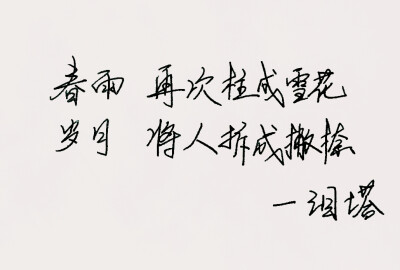 春雨 再次柱成雪花
岁月 将人拆成撇捺
一泪塔